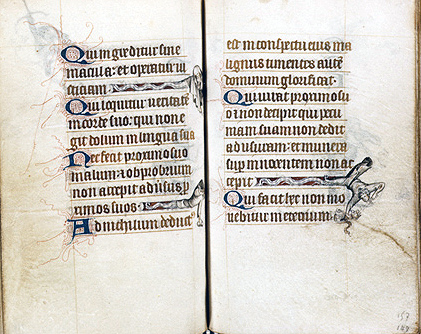 Qui ingreditur sine
macula: et operatur iu
sticiam
Qui loquitur veritatē
in corde suo: qui non e
git dolum in lingua sua
Nec fecit proximo suo
malum: z obprobrium
non accepit adūsus p
ximos suos
Ad nichilum deduct
est in conspectu eius ma
lignus timentes autē
dominum glorificat
Qui iurat proximo su
o z non decipit qui pecu
niam suam non dedit
ad usuram: et munera
sup innocentem non ac
cepit
Qui facit hec non mo
vebitur in eternum
157
149